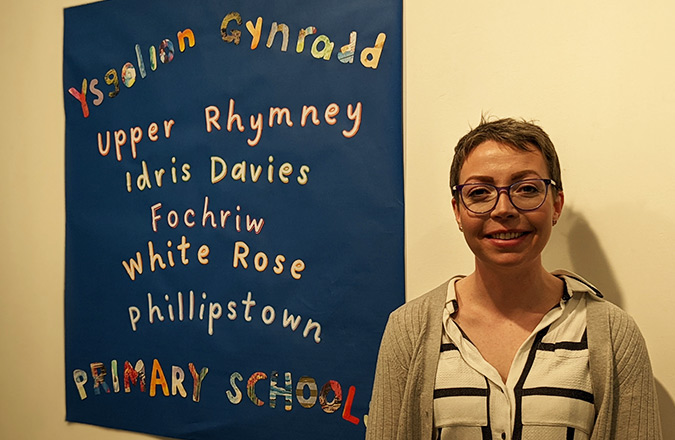 Ysgolion Gynradd
Upper Rhymney
Idris Davies
Fochriw
White Rose
Phillipstown
PRIMARY SCHOOLS